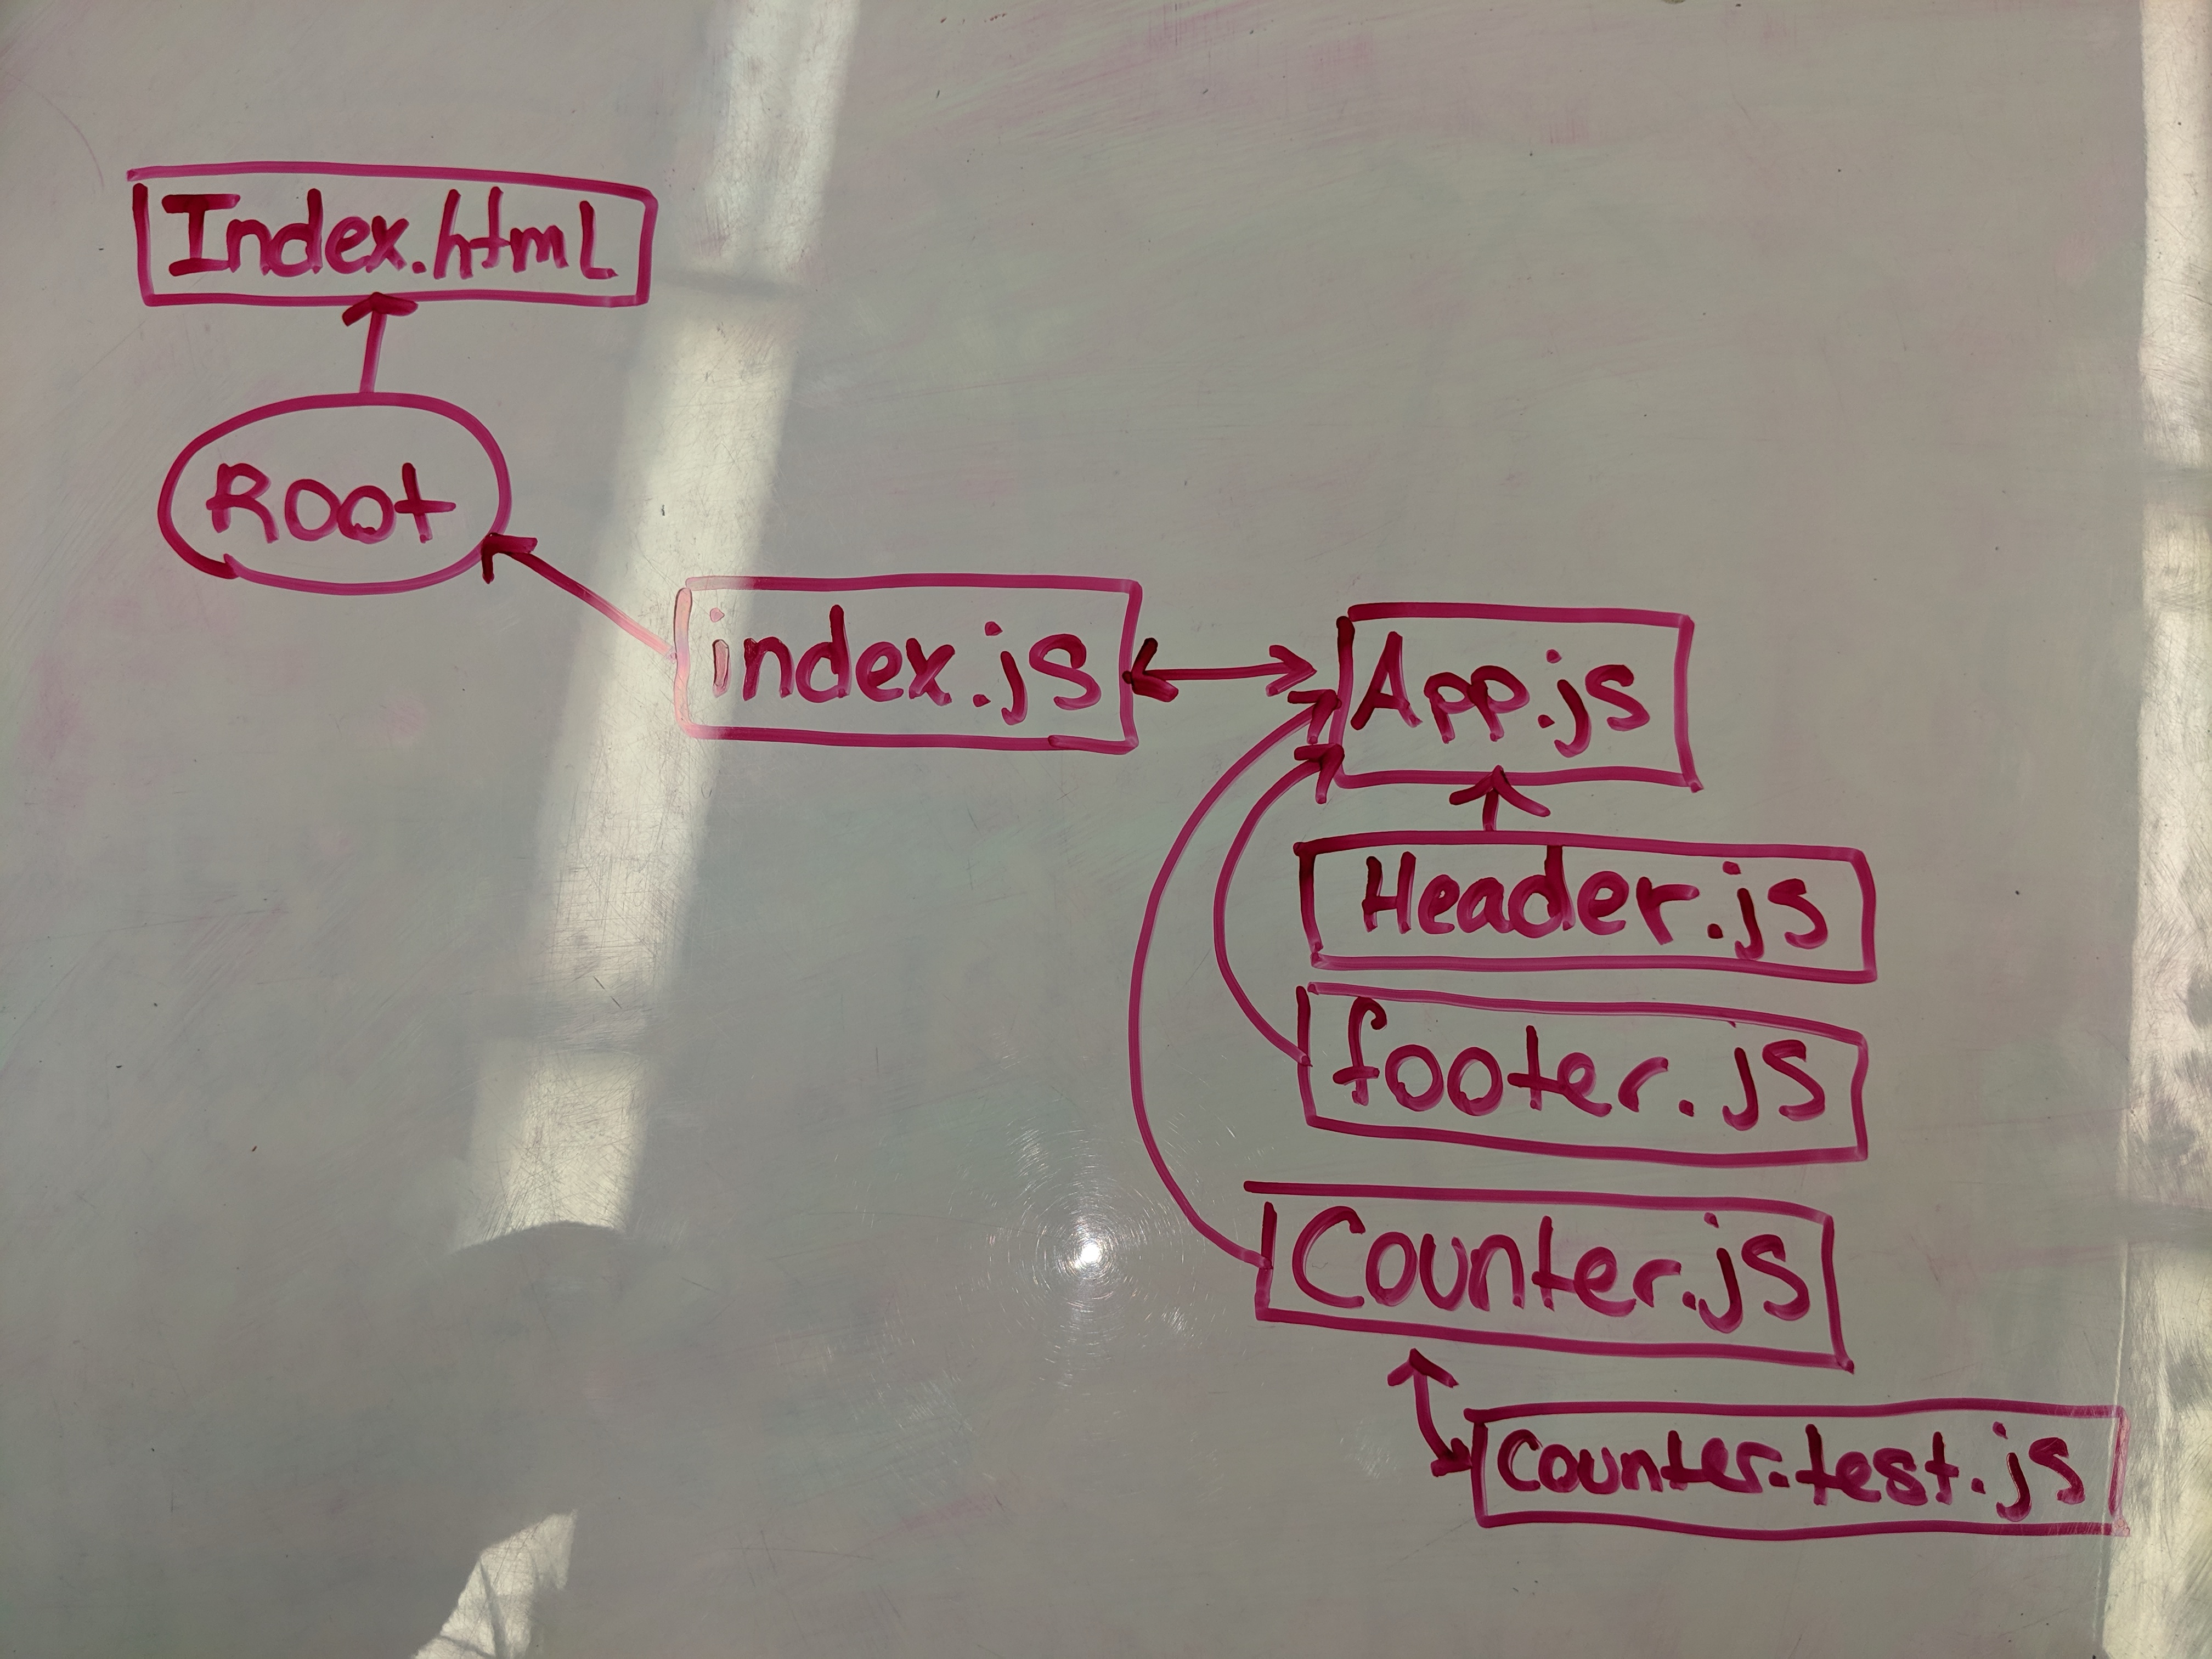 Index.html
Root
index.js
App.js
Header.js
footer.js
Counter.js
counter.test.js